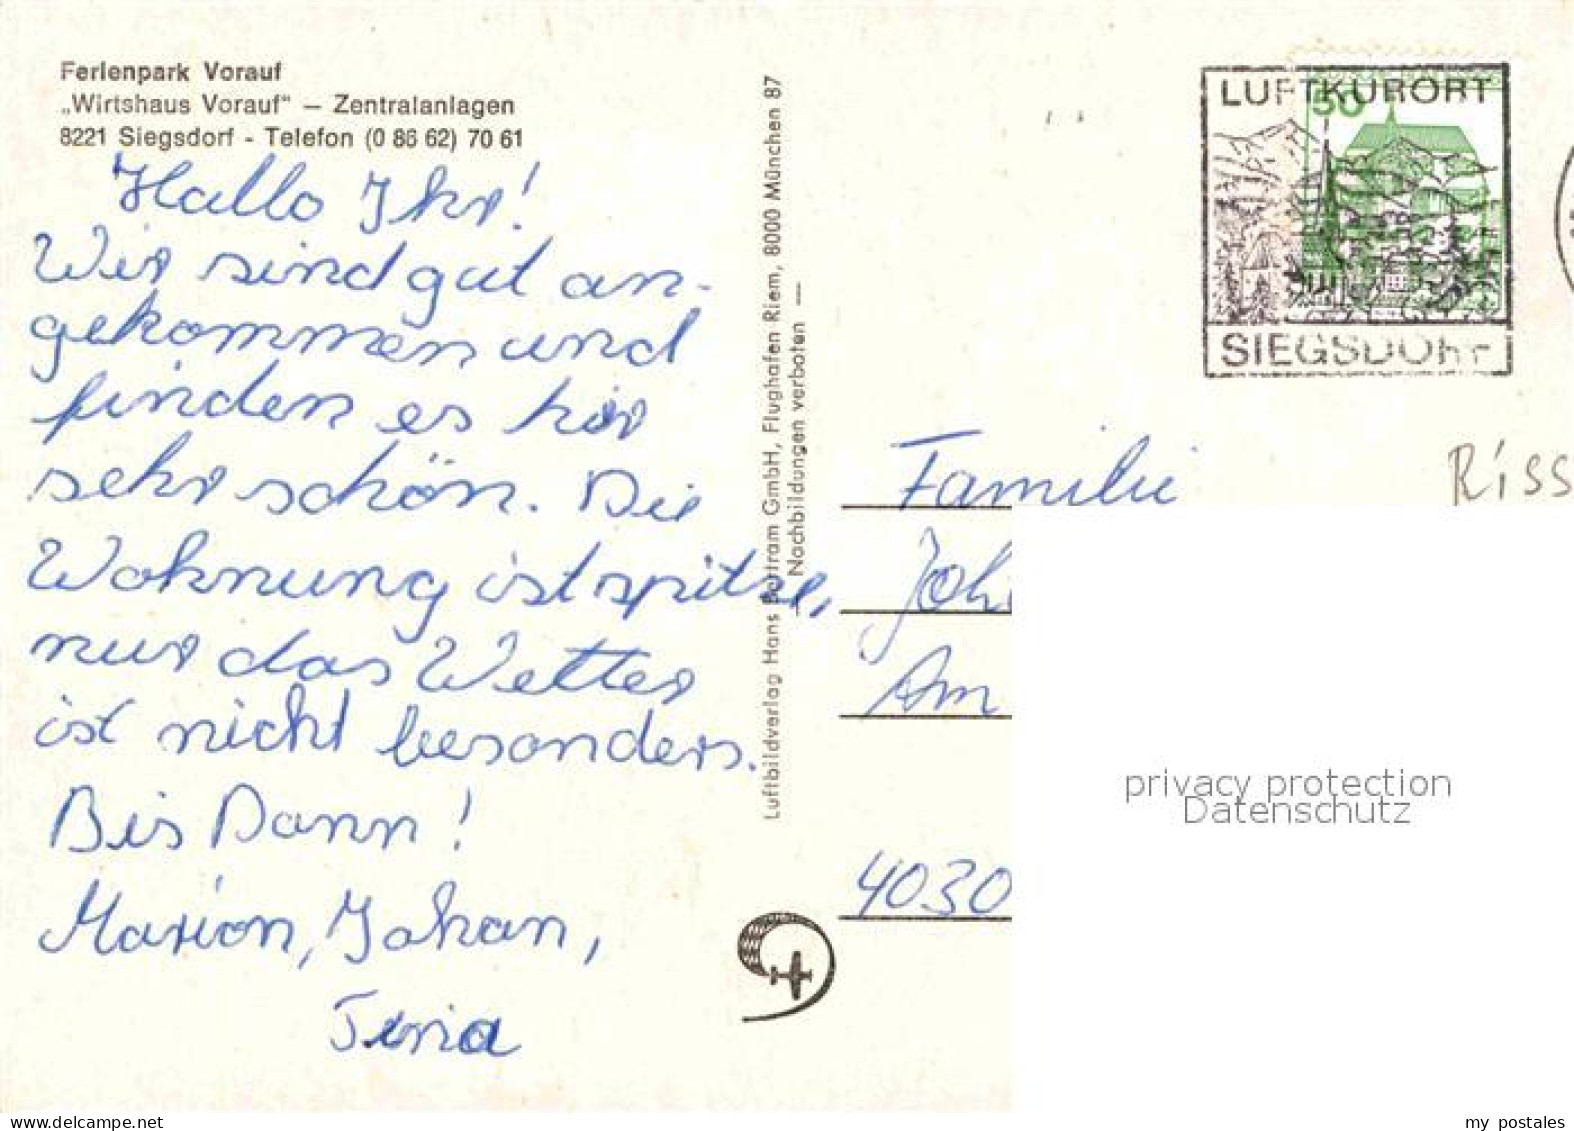 Ferienpark Vorauf
„Wirtshaus Vorauf“ – Zentralanlagen
8221 Siegsdorf - Telefon (0 86 62) 70 61
Hallo Ihr!
Wir sind gut an-
gekommen und
finden es hir
sehr schön. Die
Wohnung ist spitze,
nur das Wetter
ist nicht besonders.
Bis Dann!
Marion, Johan,
Luftbildverlag Hans Bertram GmbH, Flughafen Riem, 8000 München 87
— Nachbildungen verboten —
50
LUFTKURORT
SIEGSDORF
Riss
Familie
Joh
Am
4030
privacy protection
Datenschutz
my postales
www.delcampe.net